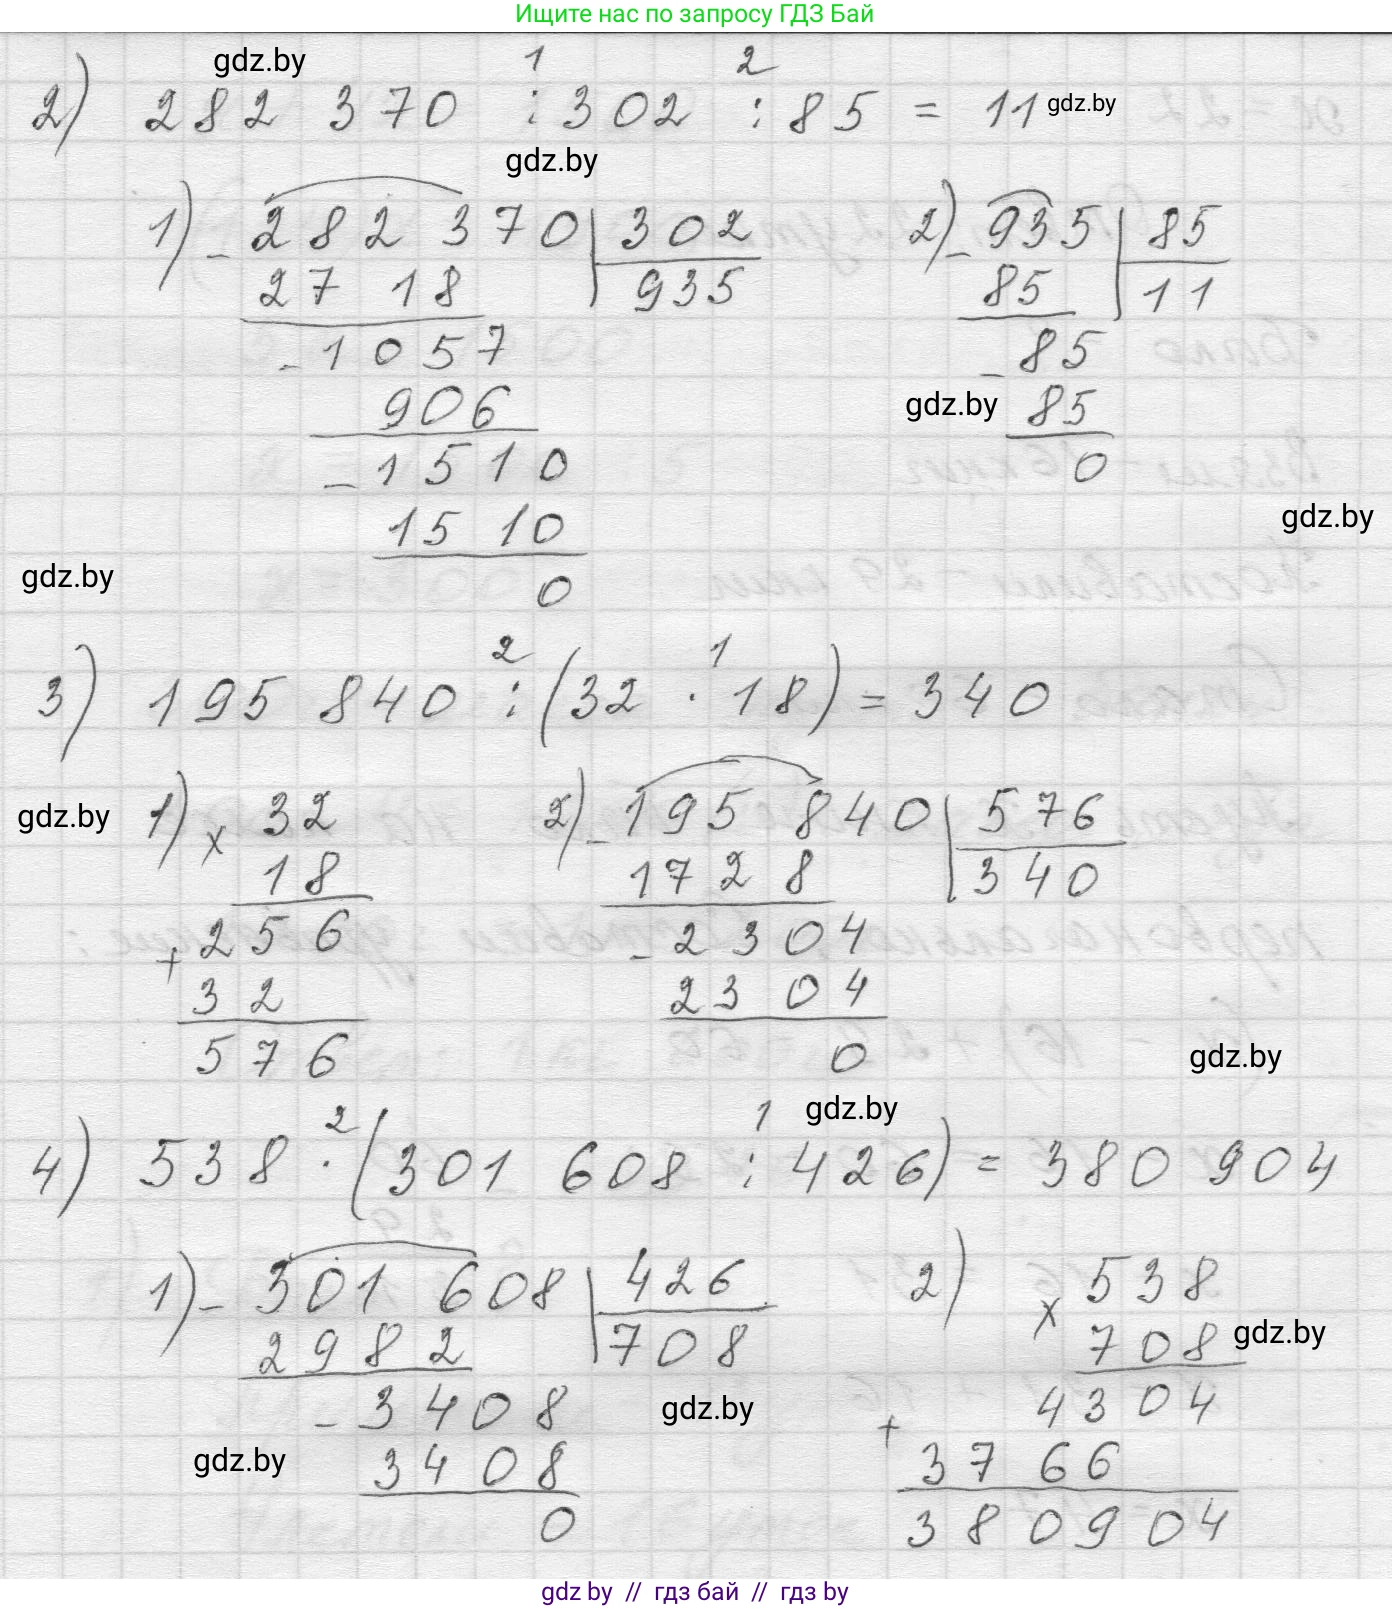 Ищите нас по запросу ГДЗ Бай
gdz.by
1 2
2) 282 370 : 302 : 85 = 11 gdz.by
gdz.by
1) - 282 370 | 302 2) - 935 | 85
27 18 935 85 11
- 1057 - 85
906 gdz.by 85
- 1510 0
1510 gdz.by
gdz.by 0
2 1
3) 195 840 : (32 · 18) = 340
gdz.by 1) x 32 2) - 195 840 | 576
18 1728 340
+ 256 - 2304
32 2304
576 0 gdz.by
2 1 gdz.by
4) 538 · (301 608 : 426) = 380 904
1) - 301 608 | 426 2) x 538
2982 708 708 gdz.by
- 3408 gdz.by 4304
gdz.by 3408 + 3766
0 380904
gdz by // гдз бай // гдз by